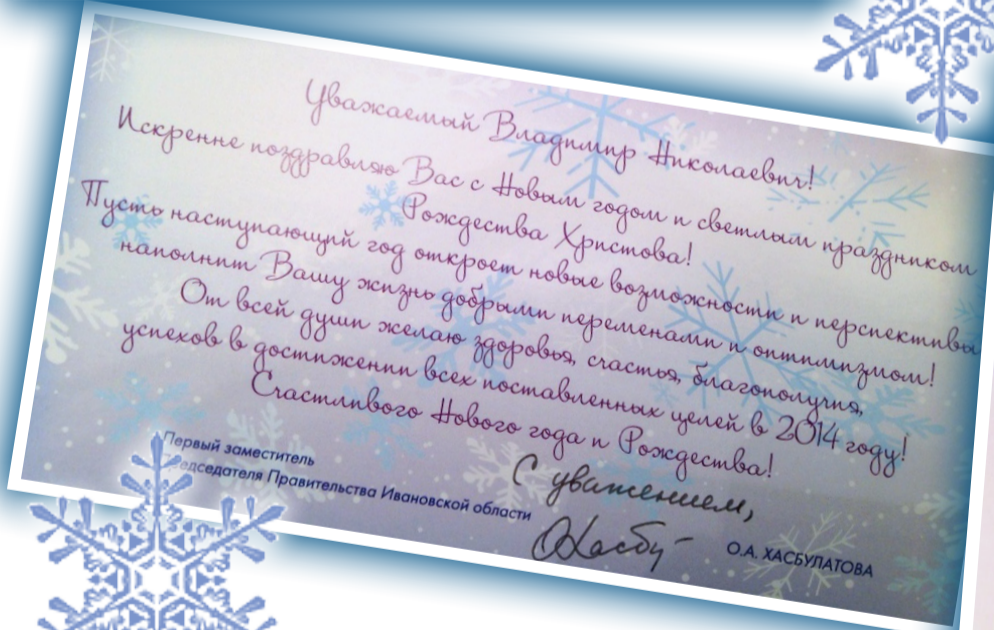 Уважаемый Владимир Николаевич!
Искренне поздравляю Вас с Новым годом и светлым праздником
Рождества Христова!
Пусть наступающий год откроет новые возможности и перспективы
наполнит Вашу жизнь добрыми переменами и оптимизмом!
От всей души желаю здоровья, счастья, благополучия,
успехов в достижении всех поставленных целей в 2014 году!
Счастливого Нового года и Рождества!
С уважением,
Первый заместитель
едседателя Правительства Ивановской области
ОХасбу
О.А. ХАСБУЛАТОВА